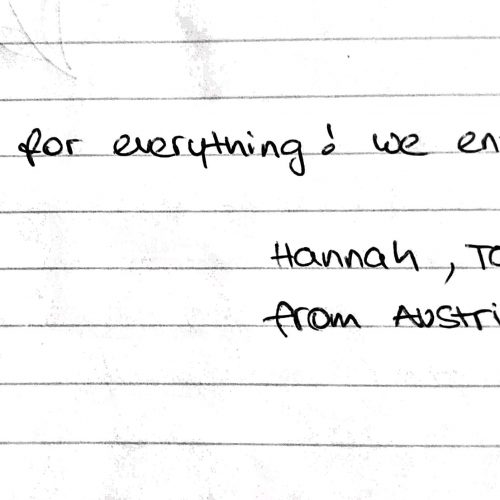 for everything! we en
Hannah, To
from Austri